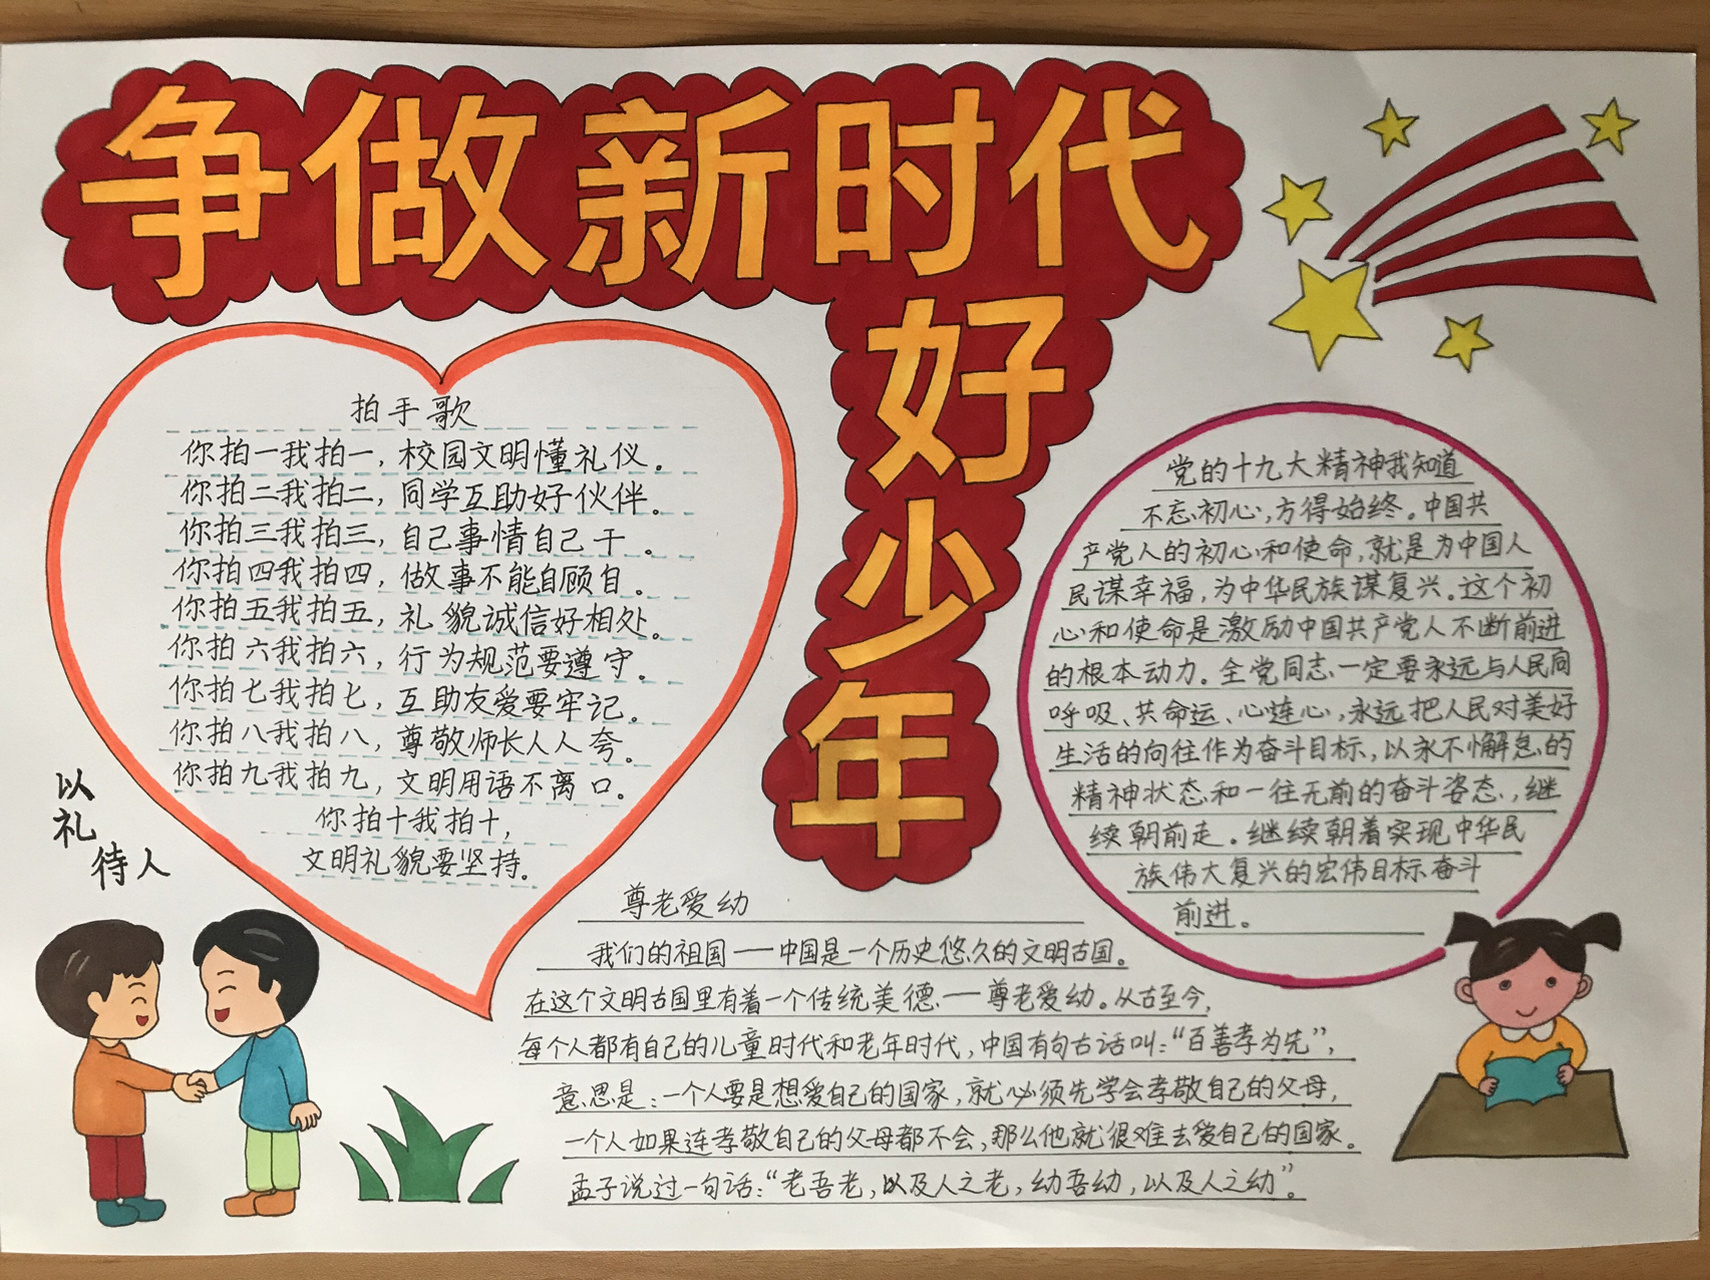 争做新时代
好少年
拍手歌
你拍一我拍一，校园文明懂礼仪。
你拍二我拍二，同学互助好伙伴。
你拍三我拍三，自己事情自己干。
你拍四我拍四，做事不能自顾自。
你拍五我拍五，礼貌诚信好相处。
你拍六我拍六，行为规范要遵守。
你拍七我拍七，互助友爱要牢记。
你拍八我拍八，尊敬师长人人夸。
你拍九我拍九，文明用语不离口。
你拍十我拍十，
文明礼貌要坚持。
以
礼
待人
党的十九大精神我知道
不忘初心，方得始终。中国共
产党人的初心和使命，就是为中国人
民谋幸福，为中华民族谋复兴。这个初
心和使命是激励中国共产党人不断前进
的根本动力。全党同志一定要永远与人民同
呼吸、共命运、心连心，永远把人民对美好
生活的向往作为奋斗目标，以永不懈怠的
精神状态和一往无前的奋斗姿态，继
续朝前走。继续朝着实现中华民
族伟大复兴的宏伟目标奋斗
前进。
尊老爱幼
我们的祖国——中国是一个历史悠久的文明古国。
在这个文明古国里有着一个传统美德——尊老爱幼。从古至今，
每个人都有自己的儿童时代和老年时代，中国有句古话叫：“百善孝为先”，
意思是：一个人要是想爱自己的国家，就必须先学会孝敬自己的父母，
一个人如果连孝敬自己的父母都不会，那么他就很难去爱自己的国家。
孟子说过一句话：“老吾老，以及人之老，幼吾幼，以及人之幼”。